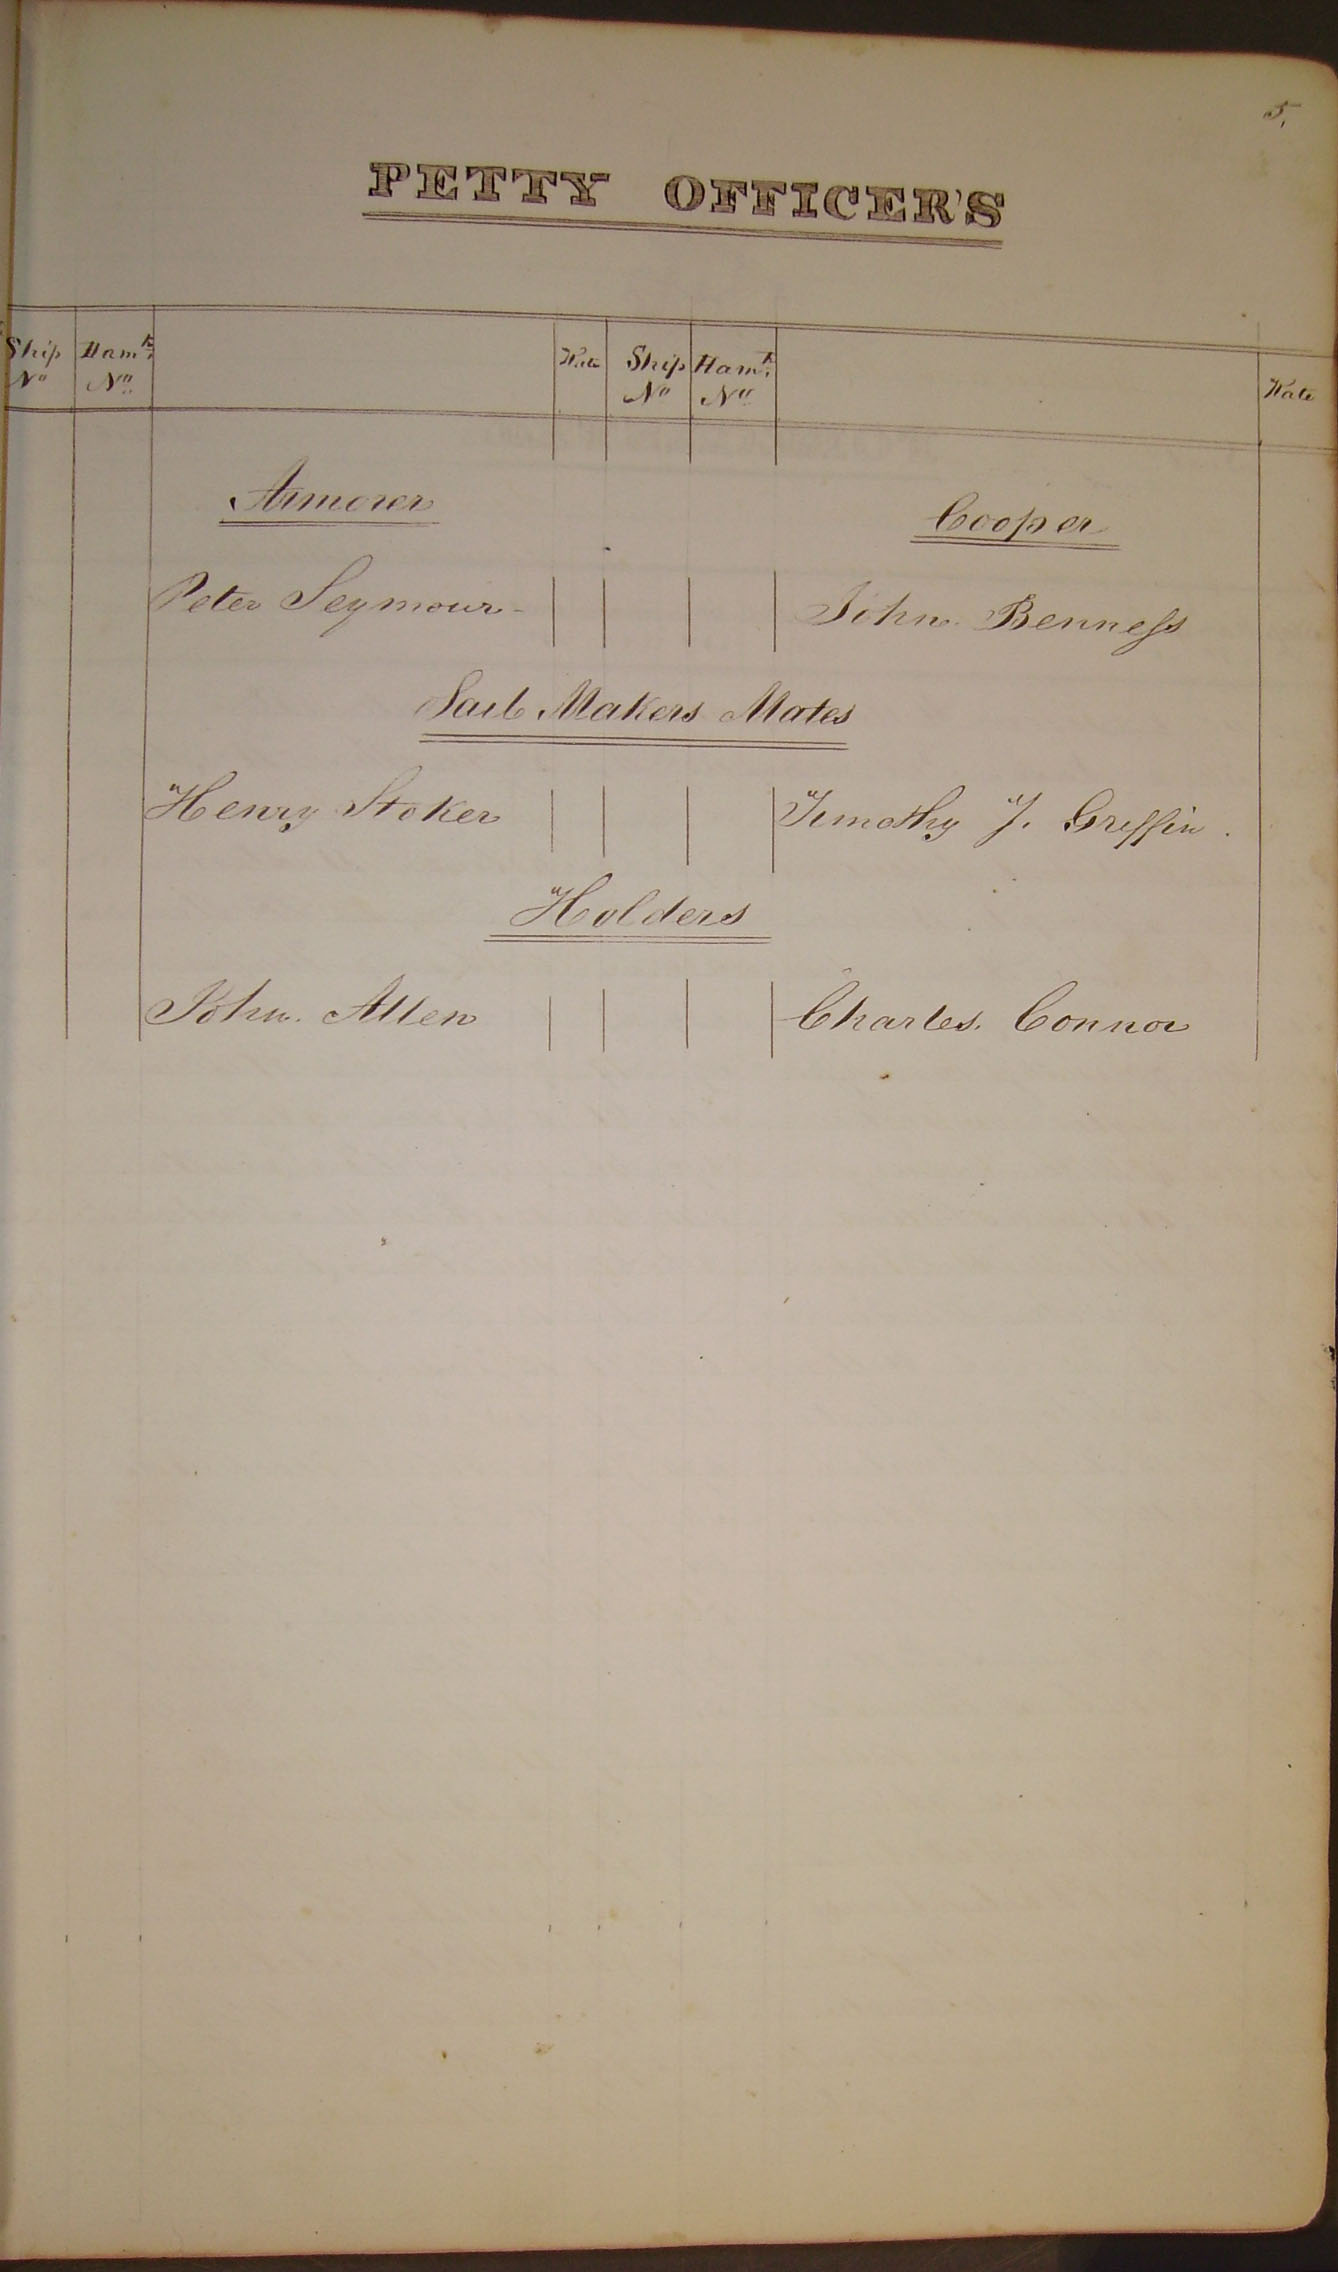 5.
PETTY OFFICER'S
Ship No Hamk. No Rate Ship No Hamk. No Rate
Armorer Cooper
Peter Seymour John Benness
Sail Makers Mates
Henry Stoker Timothy J. Griffin.
Holders
John Allen Charles Connor